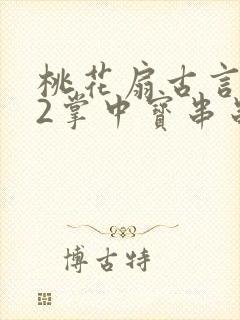 桃花扇古言
2掌中寳串
博古特